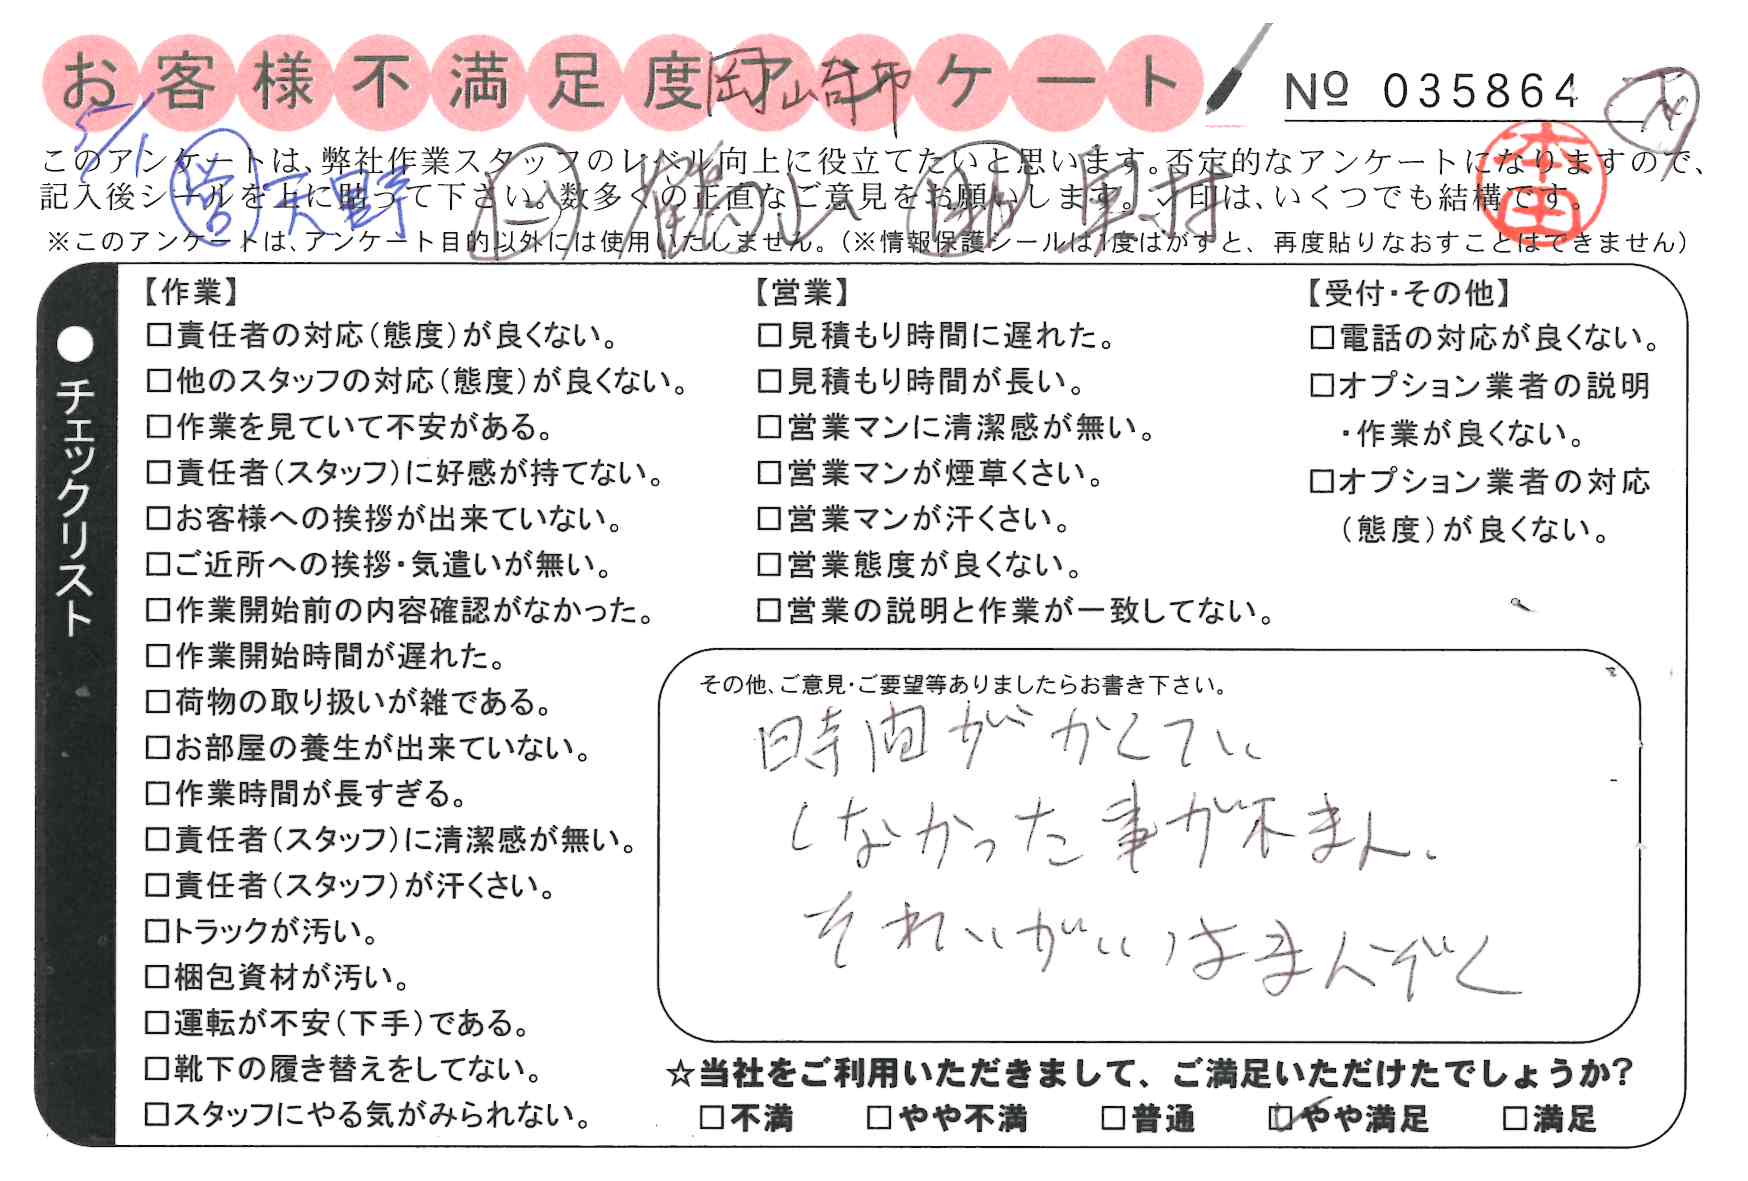 お客様不満足度アンケート
岡崎市
№ 035864
5/1
このアンケートは、弊社作業スタッフのレベル向上に役立てたいと思います。否定的なアンケートになりますので、
記入後シールを上に貼って下さい。数多くの正直なご意見をお願いします。✓印は、いくつでも結構です。
営 天野
奥村
本田
※このアンケートは、アンケート目的以外には使用いたしません。（※情報保護シールは1度はがすと、再度貼りなおすことはできません）
●チェックリスト
【作業】
□責任者の対応（態度）が良くない。
□他のスタッフの対応（態度）が良くない。
□作業を見ていて不安がある。
□責任者（スタッフ）に好感が持てない。
□お客様への挨拶が出来ていない。
□ご近所への挨拶・気遣いが無い。
□作業開始前の内容確認がなかった。
□作業開始時間が遅れた。
□荷物の取り扱いが雑である。
□お部屋の養生が出来ていない。
□作業時間が長すぎる。
□責任者（スタッフ）に清潔感が無い。
□責任者（スタッフ）が汗くさい。
□トラックが汚い。
□梱包資材が汚い。
□運転が不安（下手）である。
□靴下の履き替えをしてない。
□スタッフにやる気がみられない。
【営業】
□見積もり時間に遅れた。
□見積もり時間が長い。
□営業マンに清潔感が無い。
□営業マンが煙草くさい。
□営業マンが汗くさい。
□営業態度が良くない。
□営業の説明と作業が一致してない。
【受付・その他】
□電話の対応が良くない。
□オプション業者の説明
・作業が良くない。
□オプション業者の対応
（態度）が良くない。
その他、ご意見・ご要望等ありましたらお書き下さい。
時間がかくてい
しなかった事が不まん、
それいがいはまんぞく
☆当社をご利用いただきまして、ご満足いただけたでしょうか？
□不満 □やや不満 □普通 ☑やや満足 □満足